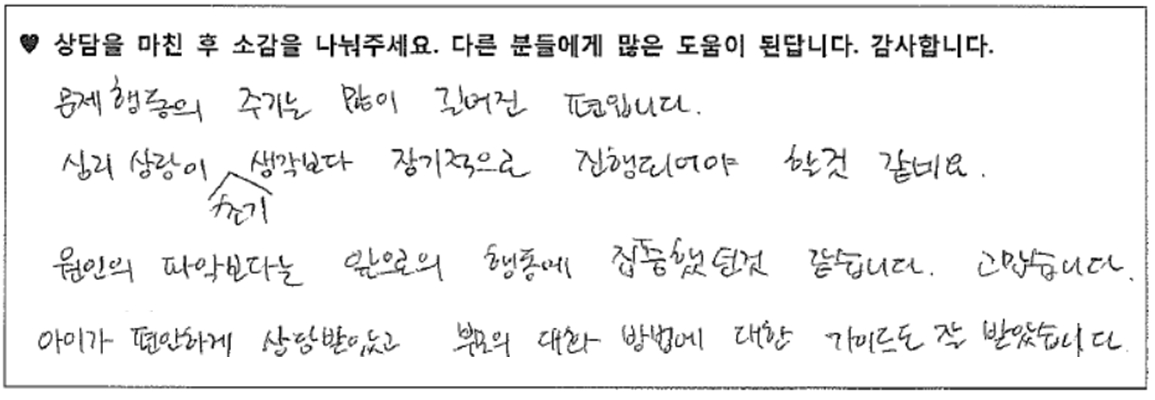 ♥ 상담을 마친 후 소감을 나눠주세요. 다른 분들에게 많은 도움이 된답니다. 감사합니다.
문제행동의 주기는 많이 길어진 편입니다.
심리 상담이 생각보다 장기적으로 진행되어야 할것 같네요.
초기
원인의 파악보다는 앞으로의 행동에 집중했던것 같습니다. 고맙습니다.
아이가 편안하게 상담받았고 부모의 대화 방법에 대한 가이드도 잘 받았습니다.